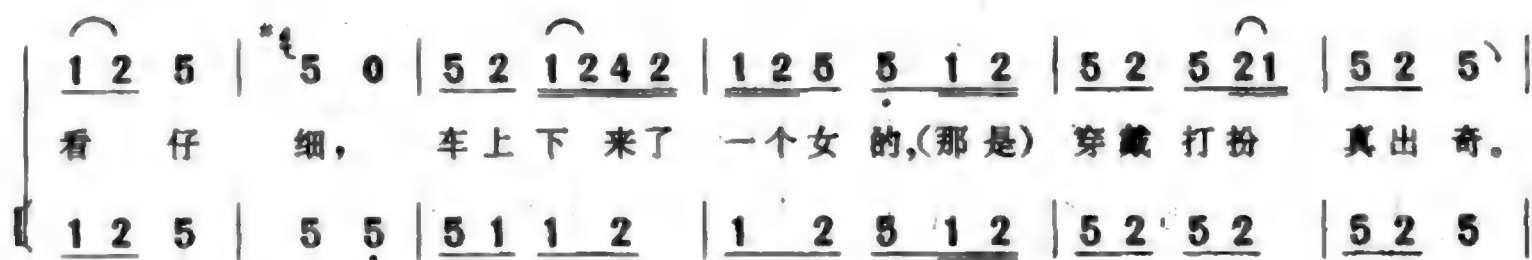 1 2 5 | #4 5 0 | 5 2 1 2 4 2 | 1 2 5 5 1 2 | 5 2 5 2 1 | 5 2 5 |
看 仔 细， 车 上 下 来 了 一 个 女 的，（那 是） 穿 戴 打 扮 真 出 奇。
1 2 5 | 5 5 | 5 1 1 2 | 1 2 5 1 2 | 5 2 5 2 | 5 2 5 |